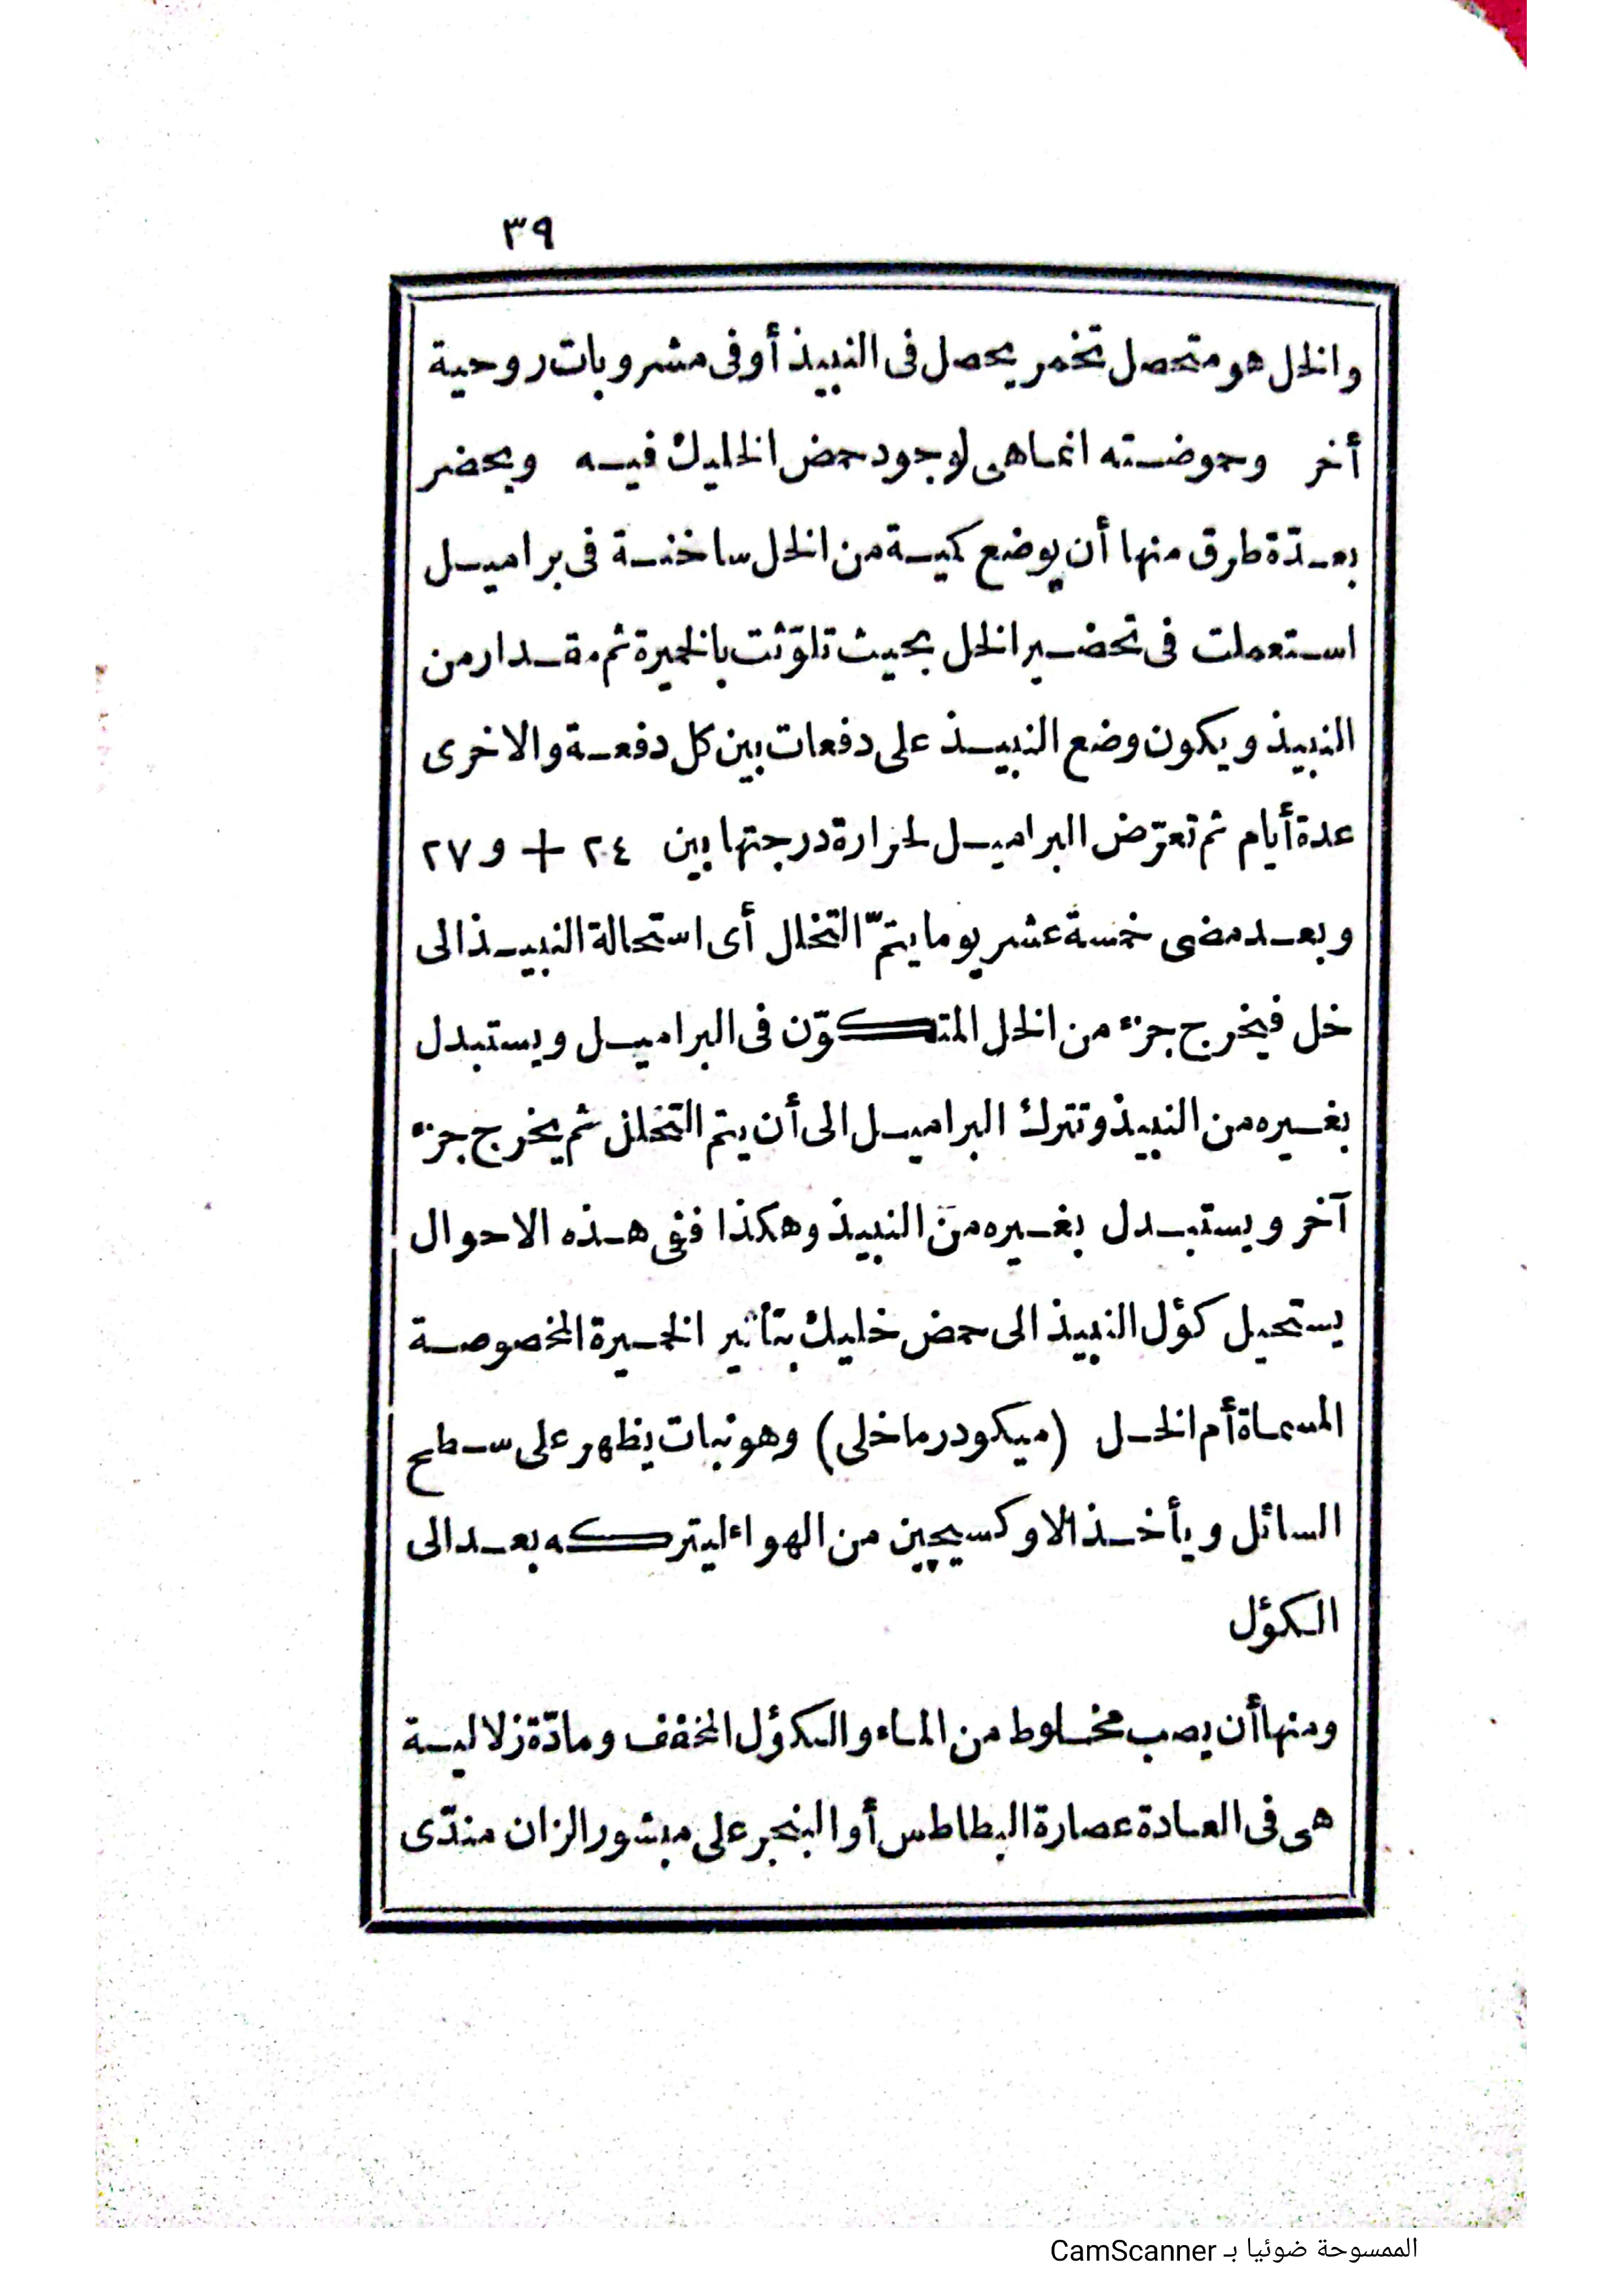 ٣٩
والخل هو متحصل تخمر يحصل فى النبيذ أو فى مشروبات روحية
أخر وحموضته انما هى لوجود حمض الخليك فيه ويحضر
بعدّة طرق منها أن يوضع كمية من الخل ساخنة فى براميل
استعملت فى تحضير الخل بحيث تلوّثت بالخميرة ثم مقدار من
النبيذ ويكون وضع النبيذ على دفعات بين كل دفعة والاخرى
عدة أيام ثم تعرّض البراميل لحرارة درجتها بين ٢٤ + و ٢٧
وبعد مضى خمسة عشر يوما يتمّ التخلل أى استحالة النبيذ الى
خل فيخرج جزء من الخل المتكوّن فى البراميل ويستبدل
بغيره من النبيذ وتترك البراميل الى أن يتم التخلل ثم يخرج جزء
آخر ويستبدل بغيره من النبيذ وهكذا ففى هذه الاحوال
يستحيل كؤل النبيذ الى حمض خليك بتأثير الخميرة المخصوصة
المسماة أم الخل (ميكودرما خلى) وهو نبات يظهر على سطح
السائل ويأخذ الاوكسيچين من الهواء ليتركه بعد الى
الكؤل
ومنها أن يصب مخلوط من الماء والكؤل المخفف ومادّة زلالية
هى فى العادة عصارة البطاطس أو البنجر على مبشور الزان مندّى
الممسوحة ضوئيا بـ CamScanner